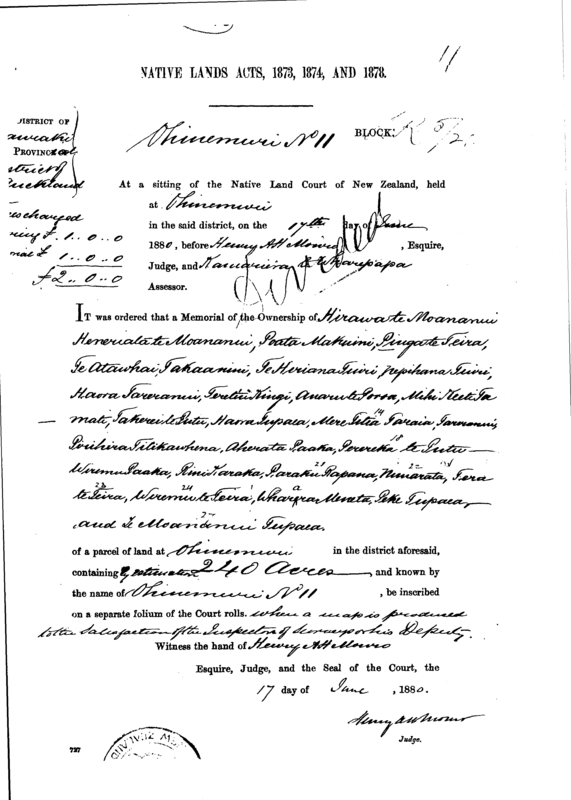 11
NATIVE LANDS ACTS, 1873, 1874, AND 1878.
Ohinemuri No 11 BLOCK.
DISTRICT OF
PROVINCE
Auckland
£ 1..0..0
£ 1..0..0
£2..0..0
At a sitting of the Native Land Court of New Zealand, held
at Ohinemuri
in the said district, on the 17th day of June
1880, before Henry A H Monro, Esquire,
Judge, and Kamariera te Wharepapa
Assessor.
IT was ordered that a Memorial of the Ownership of Hirawa te Moananui
Heneriata te Moananui, Poata Makuini, Pinga te Teira,
Te Atawhai, Takaanini, Te Heriana Tuiri, Tuiri,
Haora Tareranui, Kingi, Anaru te Mihi
Takerei te Putu, Haora Tupaea, Mere Titia Taraia,
14
Titikawhena, Aherata Paaka, Perereka te Putu
18
Wiremu Paaka, Rini Karaka, Paraku Rapana, Ninarata, Tera
21 22
te Teira, Wiremu te Teira, Meneta, Peke Tupaea,
23 24
and Te Moananui Tupaea.
27
of a parcel of land at Ohinemuri in the district aforesaid,
containing by estimation 240 Acres, and known by
the name of Ohinemuri No 11, be inscribed
on a separate folium of the Court rolls. when a map is produced
to the satisfaction of the Inspector of Surveys or his Deputy.
Witness the hand of Henry A H Monro
Esquire, Judge, and the Seal of the Court, the
17 day of June, 1880.
Henry A H Monro
Judge.
727
NEW ZEALAND